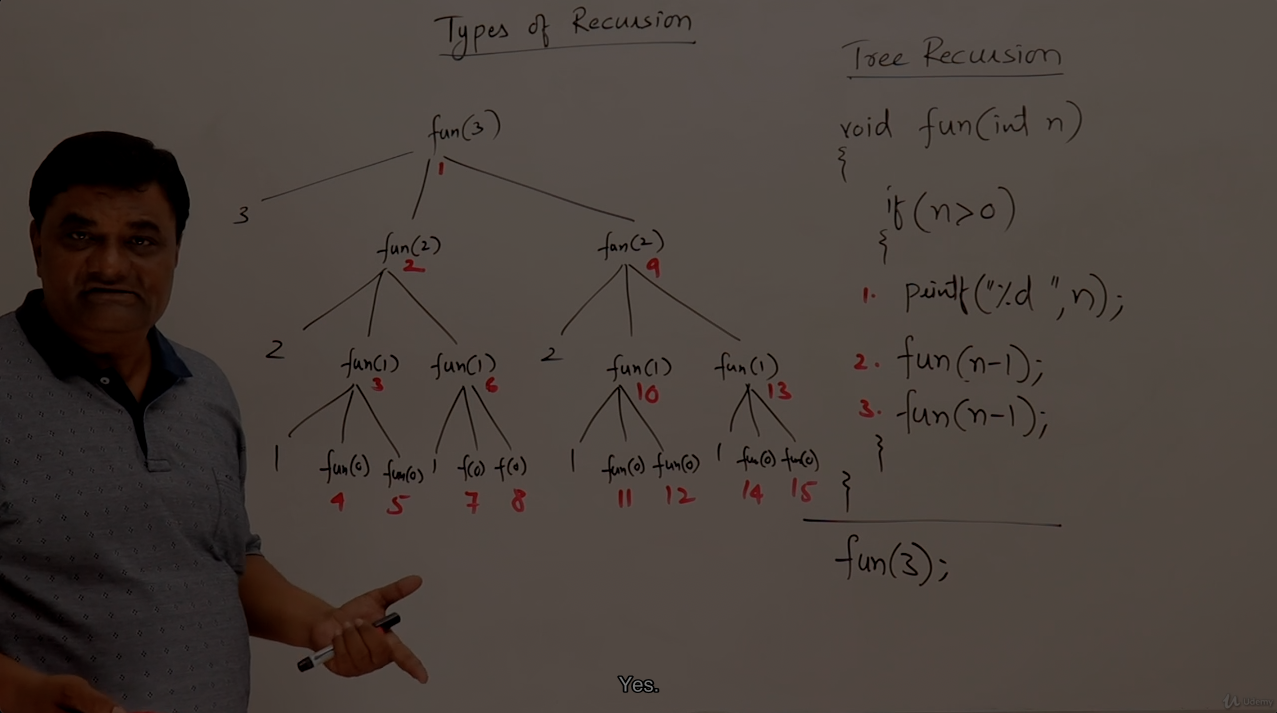 Types of Recursion
fun(3)
1
3
fun(2)
2
fun(2)
9
2
fun(1)
3
fun(1)
6
2
fun(1)
10
fun(1)
13
1
fun(0)
4
fun(0)
5
1
f(0)
7
f(0)
8
1
fun(0)
11
fun(0)
12
1
fun(0)
14
fun(0)
15
Tree Recursion
void fun(int n)
{
if(n>0)
{
1. printf("%d ",n);
2. fun(n-1);
3. fun(n-1);
}
}
fun(3);
Yes.
Udemy